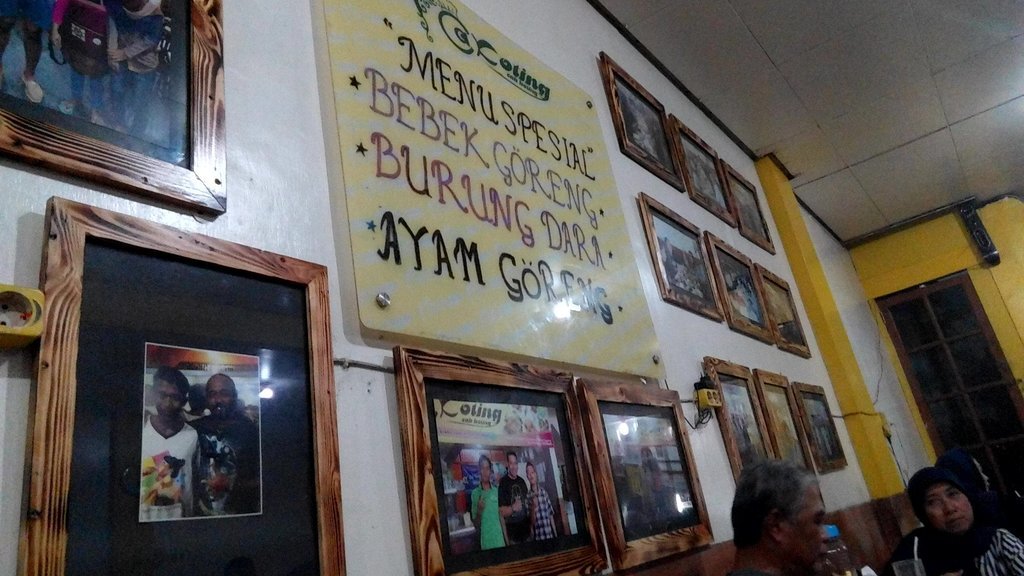 Koting
"MENU SPESIAL"
BEBEK GORENG
BURUNG DARA
AYAM GORENG
Koting